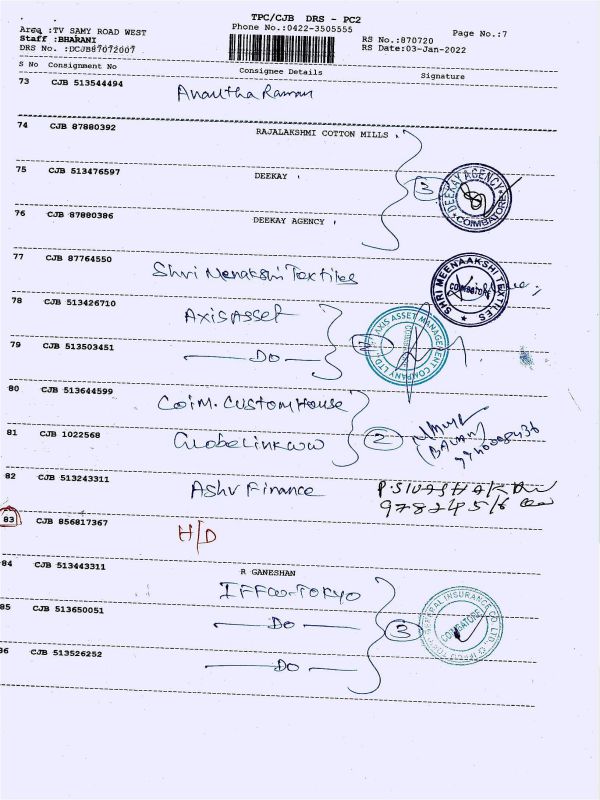 TPC/CJB DRS - PC2
Phone No.:0422-3505555
Area :TV SAMY ROAD WEST
Staff :BHARANI
DRS No. :DCJB87072007
RS No.:870720
Page No.:7
RS Date:03-Jan-2022
S No Consignment No Consignee Details Signature
73 CJB 513544494 Anantha Raman
74 CJB 87880392 RAJALAKSHMI COTTON MILLS
75 CJB 513476597 DEEKAY
3
DEEKAY AGENCY
COIMBATORE
76 CJB 87880386 DEEKAY AGENCY
77 CJB 87764550 Shri Menakshi Textiles
SHRI MEENAAKSHI TEXTILES
COIMBATORE
78 CJB 513426710 Axis Asset
AXIS ASSET MANAGEMENT COMPANY LTD.
79 CJB 513503451 Do
80 CJB 513644599 Coim. Custom House
81 CJB 1022568 Globelink WW
2
(BALAN)
82 CJB 513243311 Ashv Finance
83 CJB 856817367 H/D
84 CJB 513443311 R GANESHAN
IFFCO-TOKYO
85 CJB 513650051 Do
3
GENERAL INSURANCE CO. LTD.
COIMBATORE
86 CJB 513526252 Do